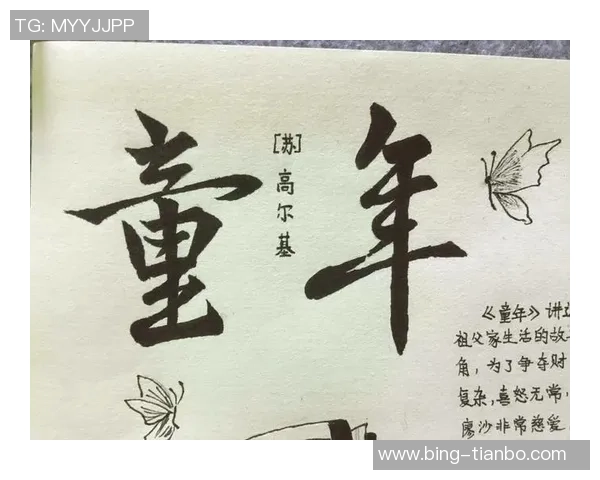 TG: MYYJJPP
童年
[苏]高尔基
《童年》讲
祖父家生活的故
角，为了争夺财
复杂，喜怒无常，
廖沙非常慈爱
www.bing-tianbo.com